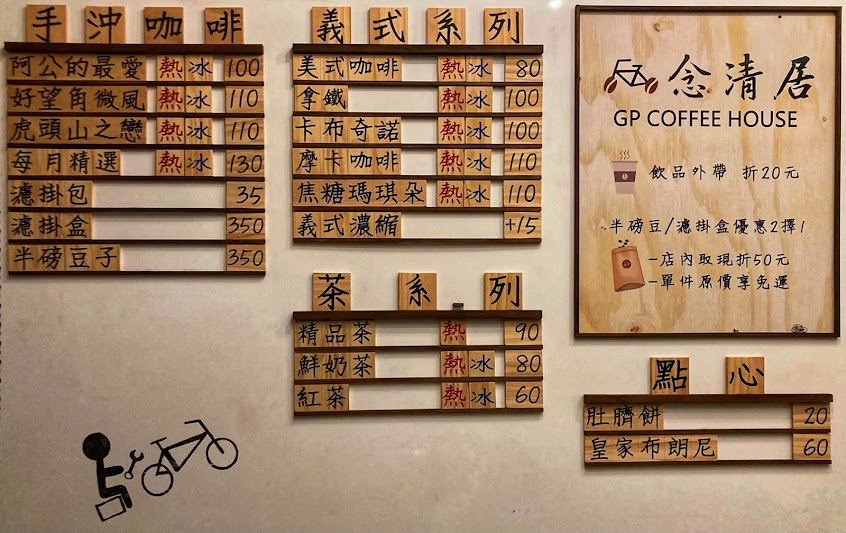 手沖咖啡
阿公的最愛 熱 冰 100
好望角微風 熱 冰 110
虎頭山之戀 熱 冰 110
每月精選 熱 冰 130
濾掛包 35
濾掛盒 350
半磅豆子 350
義式系列
美式咖啡 熱 冰 80
拿鐵 熱 冰 100
卡布奇諾 熱 冰 100
摩卡咖啡 熱 冰 110
焦糖瑪琪朵 熱 冰 110
義式濃縮 +15
茶系列
精品茶 熱 90
鮮奶茶 熱 冰 80
紅茶 熱 冰 60
念清居
GP COFFEE HOUSE
飲品外帶 折20元
半磅豆/濾掛盒優惠2擇1
-店內取現折50元
-單件原價享免運
點心
肚臍餅 20
皇家布朗尼 60